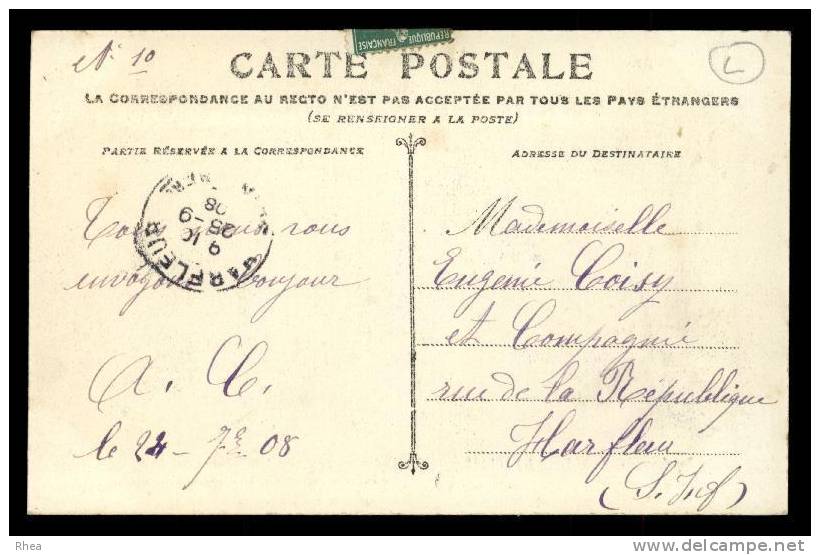 RÉPUBLIQUE FRANÇAISE
N° 10
L
CARTE POSTALE
LA CORRESPONDANCE AU RECTO N'EST PAS ACCEPTÉE PAR TOUS LES PAYS ÉTRANGERS
(SE RENSEIGNER A LA POSTE)
PARTIE RÉSERVÉE A LA CORRESPONDANCE
ADRESSE DU DESTINATAIRE
HARFLEUR
9
25-9
08
vous
envoyons bonjour
A. C.
le 24 - 7re 08
Mademoiselle
Eugenie Coisy
et Compagnie
rue de la République
Harfleur
(S. Inf)
Rhea
www.delcampe.net